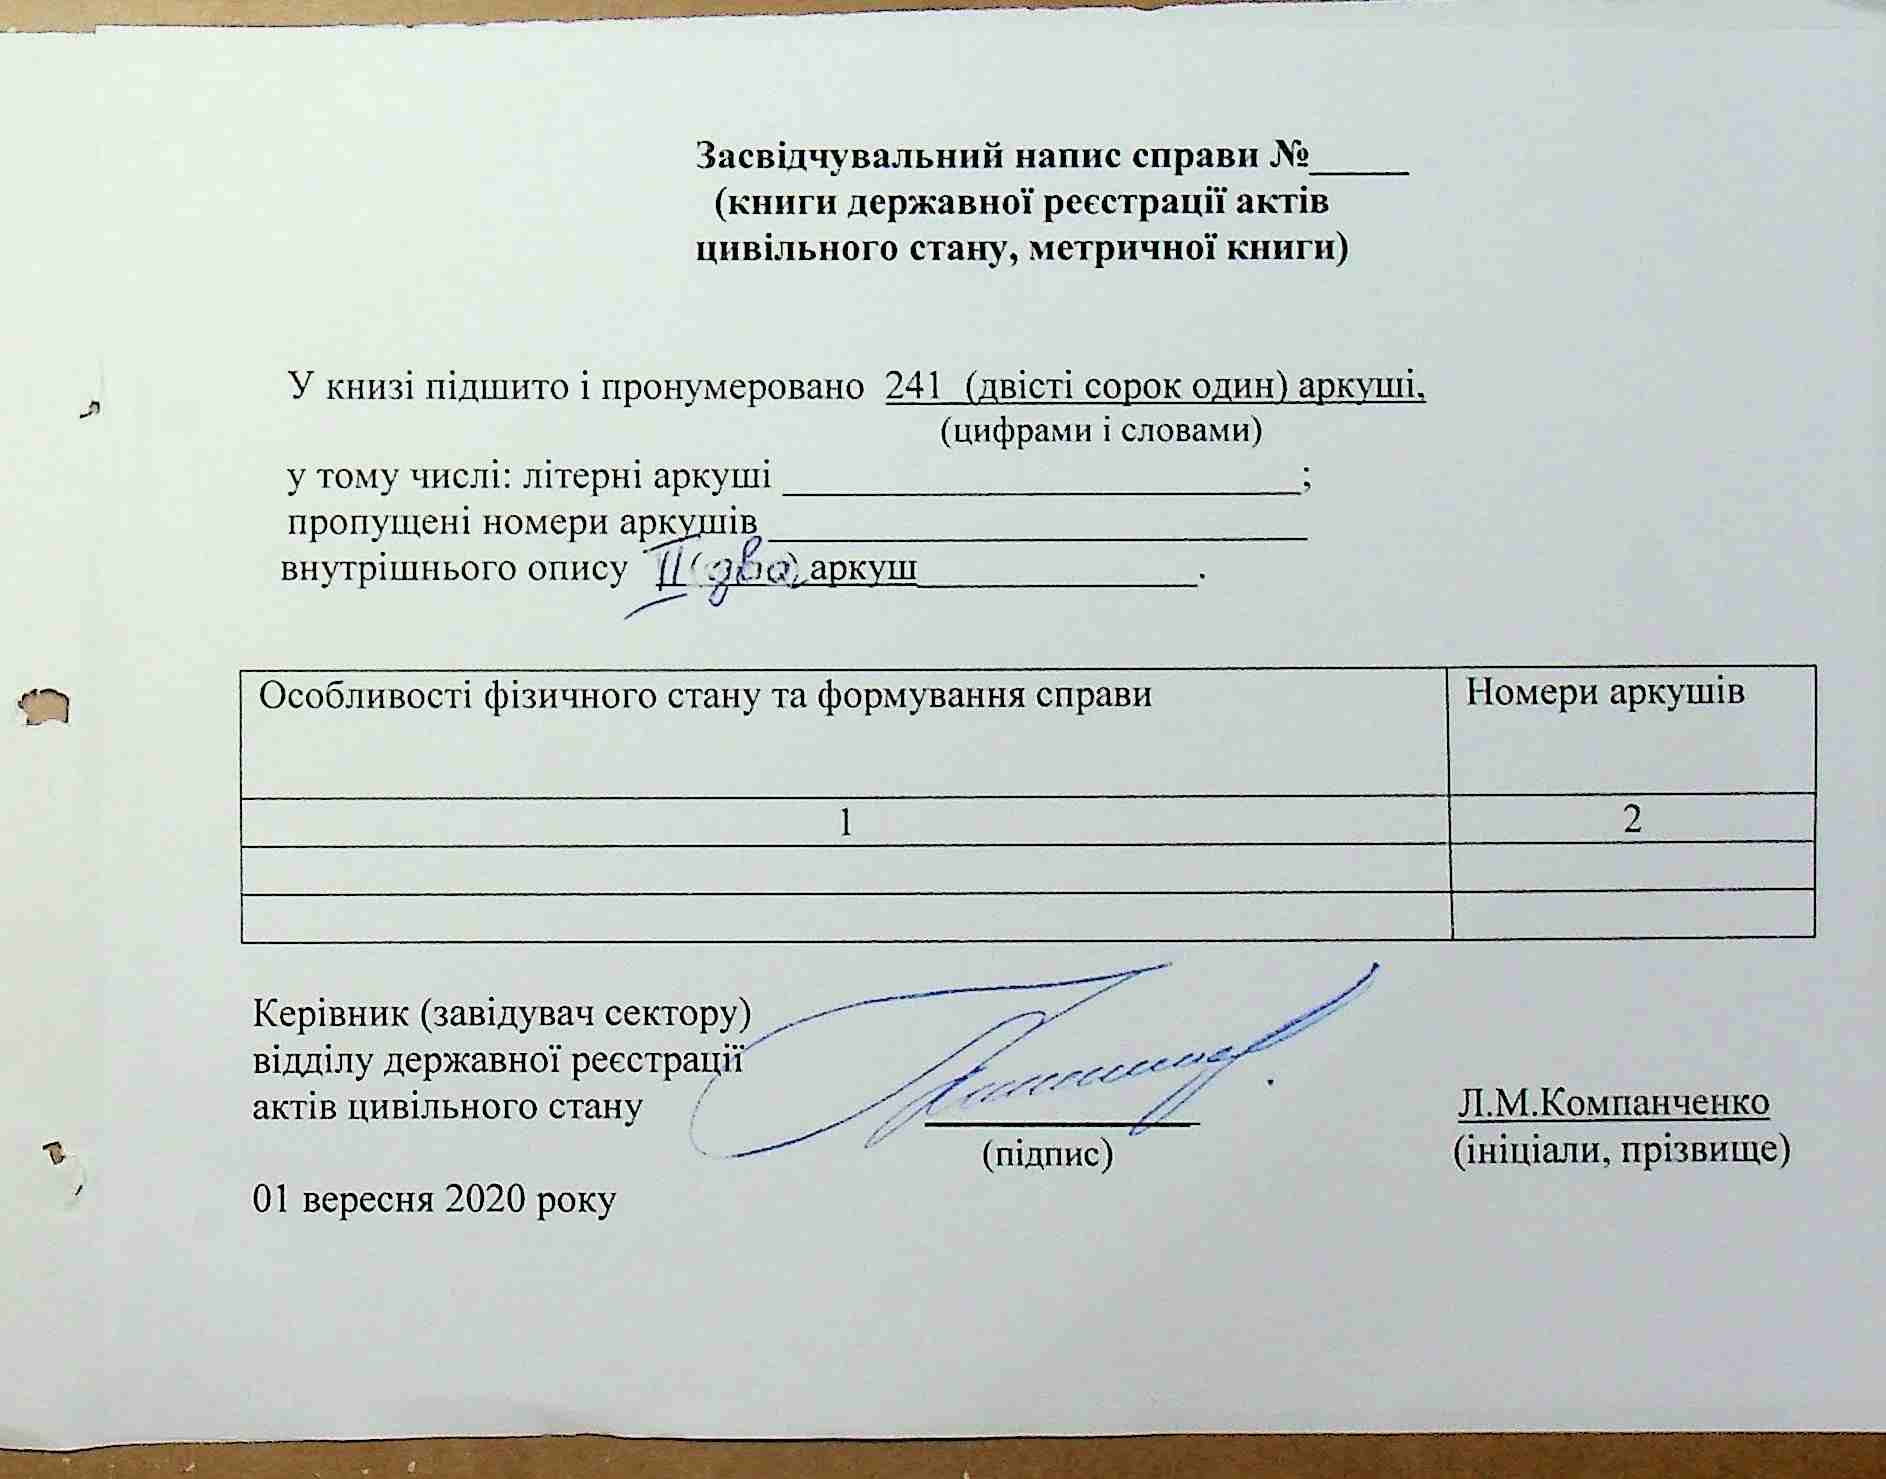 Засвідчувальний напис справи №_____
(книги державної реєстрації актів
цивільного стану, метричної книги)
У книзі підшито і пронумеровано 241 (двісті сорок один) аркуші,
(цифрами і словами)
у тому числі: літерні аркуші ___________________________;
пропущені номери аркушів ____________________________
внутрішнього опису II (два) аркуш_______________.
Особливості фізичного стану та формування справи Номери аркушів
1 2
Керівник (завідувач сектору)
відділу державної реєстрації
актів цивільного стану ______________ Л.М.Компанченко
(підпис) (ініціали, прізвище)
01 вересня 2020 року